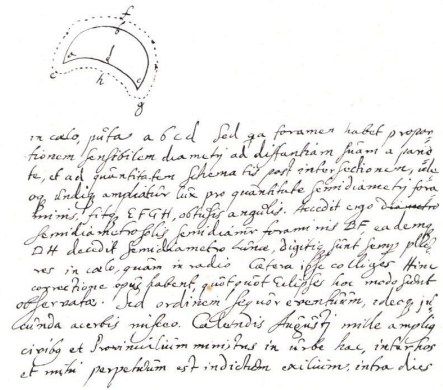 f
b
a
d
c
e
h
g
in cælo, puta a b c d Sed qa foramen habet propor-
tionem sensibilem diametrj ad distantiam suam a parie-
te, et ad quantitatem schematis post intersectionem, ideo
undiq ampliatur lux pro quantitate semidiametrj fora
minis, fitq EFGH, obtusis angulis. Accedit ergo
semidiametro solis semidiameter foraminis BF eadem
DH decedit semidiametro Lunæ, digitj sunt semp plu-
res in cælo, quam in radio Cætera ipse colliges Hinc
correctione opus habent, quotquot Eclipses hoc modo sunt
observatæ. Sed ordinem sequor eventuum, ideoq ju-
cunda acerbis misceo. Calendis Augustj mille amplius
civibq et Provincialium ministris in urbe hac, inter hos
et mihi perpetuum est indictum exilium, intra dies